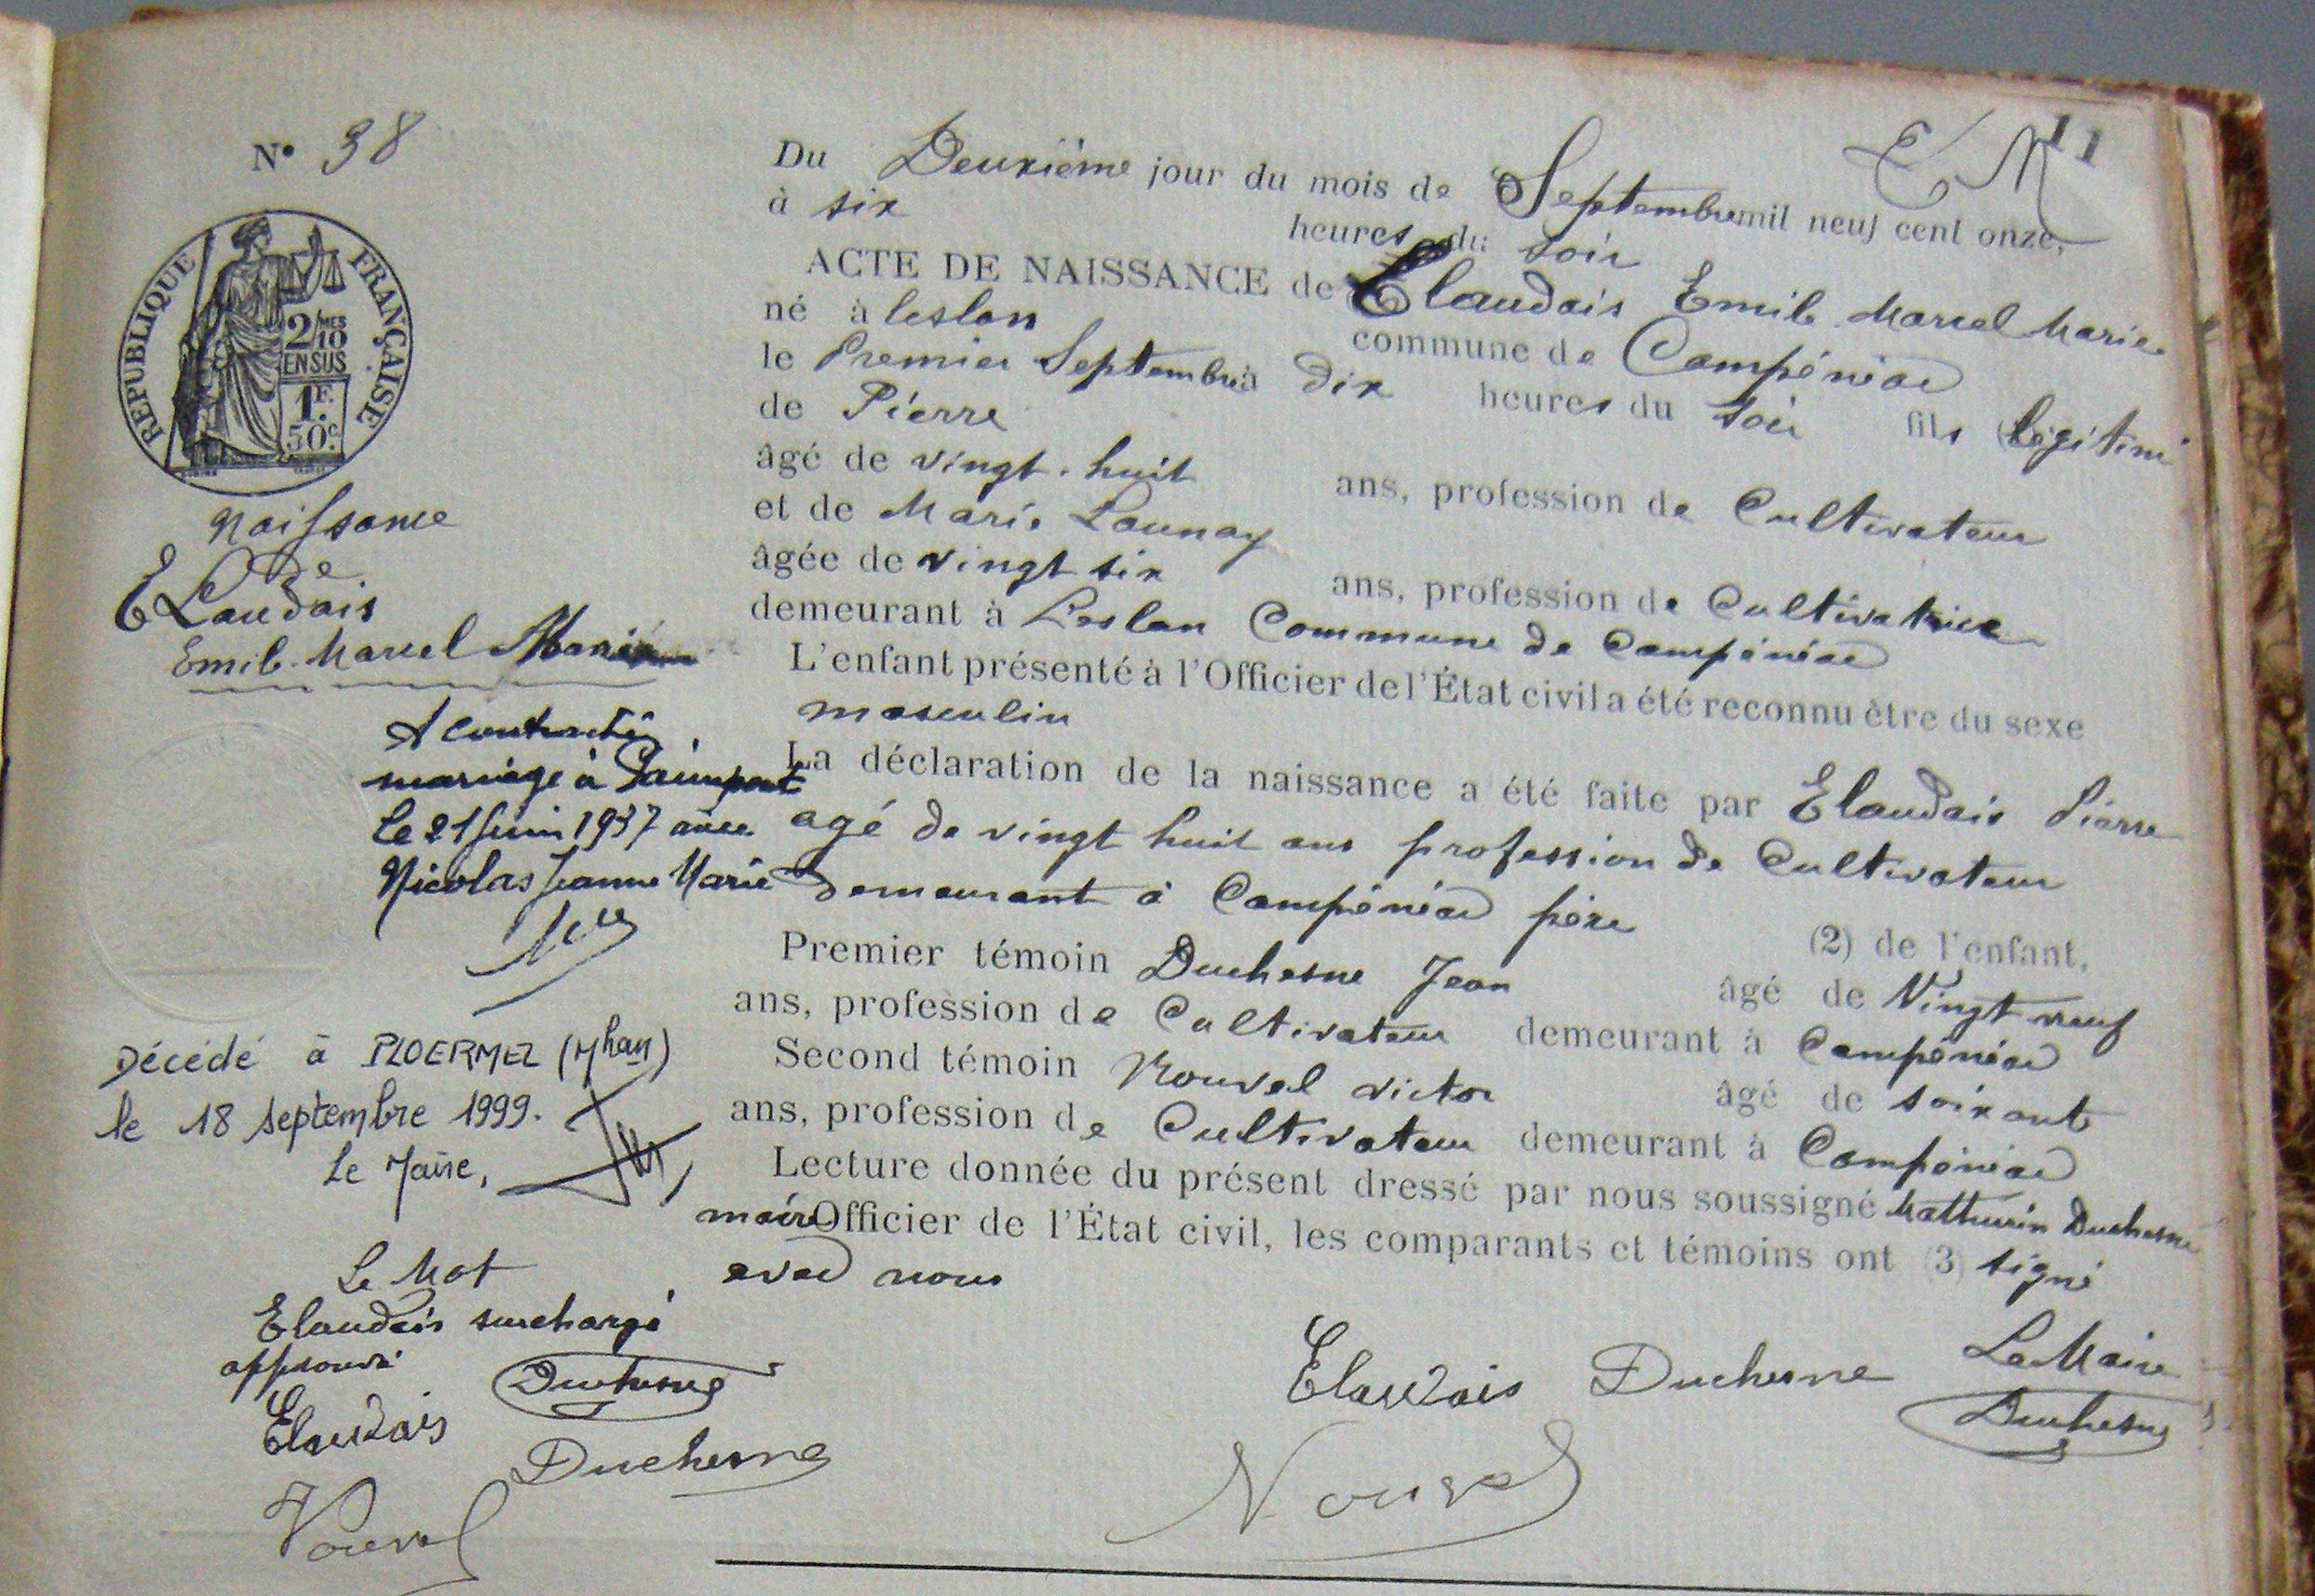 11
E M
N° 38
REPUBLIQUE FRANÇAISE
2/10 MES
EN SUS
1F.
50c.
Naissance
de
Elaudais
Emile Marcel Marie
A contracté
mariage à Paimpont
le 21 juin 1937 avec
Nicolas Jeanne Marie
Décédé à PLOERMEL (Mhan)
le 18 septembre 1999.
Le Maire,
Le Mot
Elaudais surchargé
approuvé
Duchesne
Elaudais
Duchesne
Nouvel
Du Deuxième jour du mois de Septembre mil neuf cent onze,
à six heures du soir
ACTE DE NAISSANCE de Elaudais Emile Marcel Marie
né à leslan commune de Campénéac
le Premier Septembre à dix heures du soir fils légitime
de Pierre
âgé de vingt-huit ans, profession de Cultivateur
et de Marie Launay
âgée de vingt six ans, profession de Cultivatrice
demeurant à Leslan Commune de Campénéac
L'enfant présenté à l'Officier de l'État civil a été reconnu être du sexe
masculin
La déclaration de la naissance a été faite par Elaudais Pierre
agé de vingt huit ans profession de Cultivateur
demeurant à Campénéac père (2) de l'enfant,
Premier témoin Duchesne Jean âgé de Vingt neuf
ans, profession de Cultivateur demeurant à Campénéac
Second témoin Nouvel victor âgé de soixante
ans, profession de Cultivateur demeurant à Campénéac
Lecture donnée du présent dressé par nous soussigné Mathurin Duchesne
maire Officier de l'État civil, les comparants et témoins ont (3) signé
avec nous
Elaudais Duchesne Le Maire
Duchesne
Nouvel